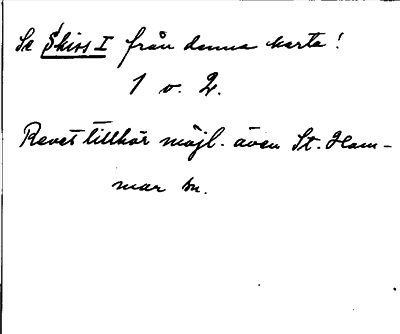 Se Skiss I från denna karta!
1 o. 2.
Revet tillhör möjl. även St. Ham-
mar sn.